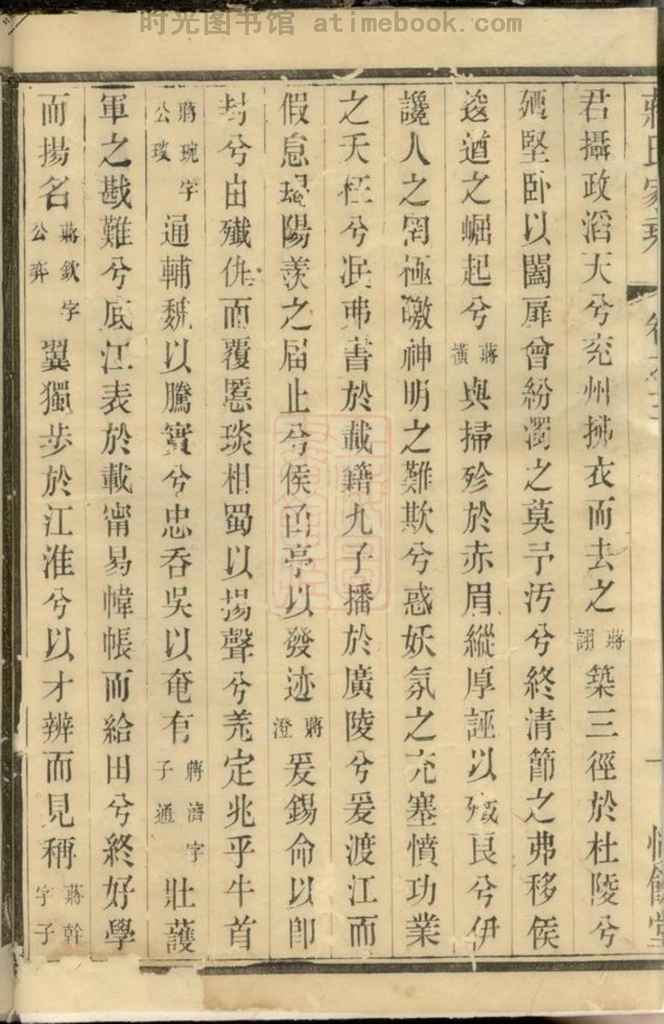 时光图书馆 atimebook.com
蔣氏家乘
君攝政滔天兮兖州拂衣而去之蔣詡築三徑於杜陵兮
堅卧以闔扉曾紛濁之莫予汚兮終清節之弗移俟
遒之崛起兮蔣橫與掃殄於赤眉縱厚誣以殲良兮伊
讒人之罔極噭神明之難欺兮惑妖氛之充塞憤功業
之夭枉兮泯弗書於載籍九子播於廣陵兮爰渡江而
假息陽羨之届止兮侯亭以發迹蔣澄爰錫命以卽
封兮由殲仇而覆惡琰相蜀以揚聲兮羌定兆乎牛首
蔣琬字公琰通輔魏以騰實兮忠吞吳以奄有蔣濟字子通壯護
軍之戡難兮底江表於載甯易幃帳而給田兮終好學
而揚名蔣欽字公奕翼獨步於江淮兮以才辨而見稱蔣幹字子